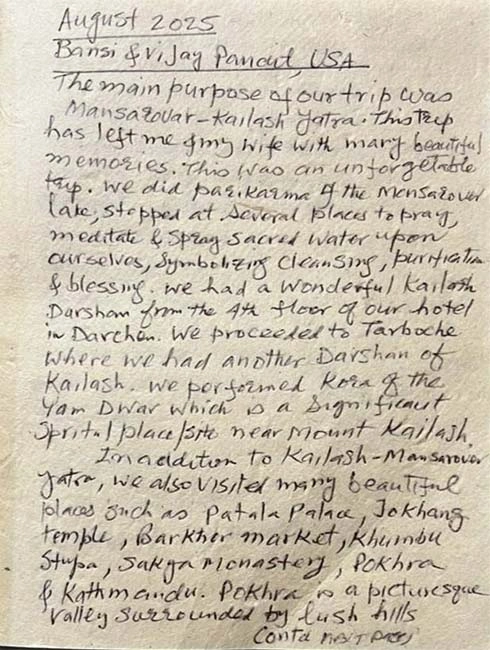 August 2025
Bansi & Vijay Pandit, USA
The main purpose of our trip was
Mansarovar-Kailash Yatra. This trip
has left me & my wife with many beautiful
memories. This was an unforgetable
trip. We did parikarma of the Mansarover
lake, stopped at several places to pray,
meditate & spray sacred water upon
ourselves, symbolizing cleansing, purification
& blessing. We had a wonderful Kailash
Darshan from the 4th floor of our hotel
in Darchen. We proceeded to Tarboche
where we had another Darshan of
Kailash. We performed Kora of the
Yam Dwar which is a significant
Sprital place/site near Mount Kailash.
In addition to Kailash-Mansarover
Yatra, we also visited many beautiful
places such as Patala Palace, Jokhang
temple, Barkhor market, Khumbu
Stupa, Sakya Monastery, Pokhra
& Kathmandu. Pokhra is a picturesque
valley surrounded by lush hills
Contd next page